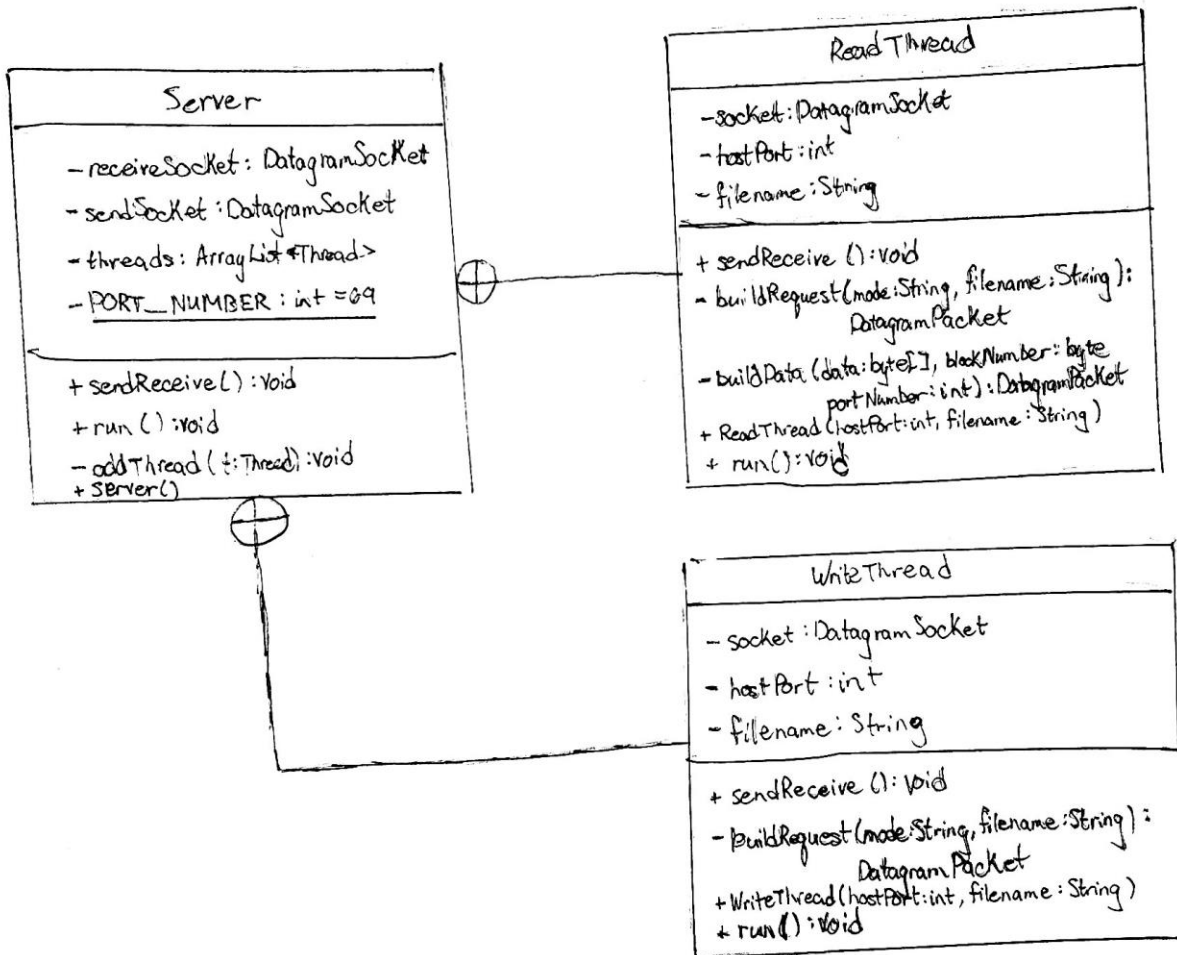 Server
-receiveSocket: DatagramSocket
-sendSocket: DatagramSocket
-threads: ArrayList<Thread>
-PORT_NUMBER: int = 69
+ sendReceive(): void
+ run(): void
- addThread(t: Thread): void
+ Server()
ReadThread
-socket: DatagramSocket
-hostPort: int
-filename: String
+ sendReceive(): void
- buildRequest(mode: String, filename: String):
DatagramPacket
-buildData(data: byte[], blockNumber: byte
portNumber: int): DatagramPacket
+ ReadThread(hostPort: int, filename: String)
+ run(): void
WriteThread
- socket: DatagramSocket
- hostPort: int
- filename: String
+ sendReceive(): void
-buildRequest(mode: String, filename: String):
DatagramPacket
+WriteThread(hostPort: int, filename: String)
+ run(): void